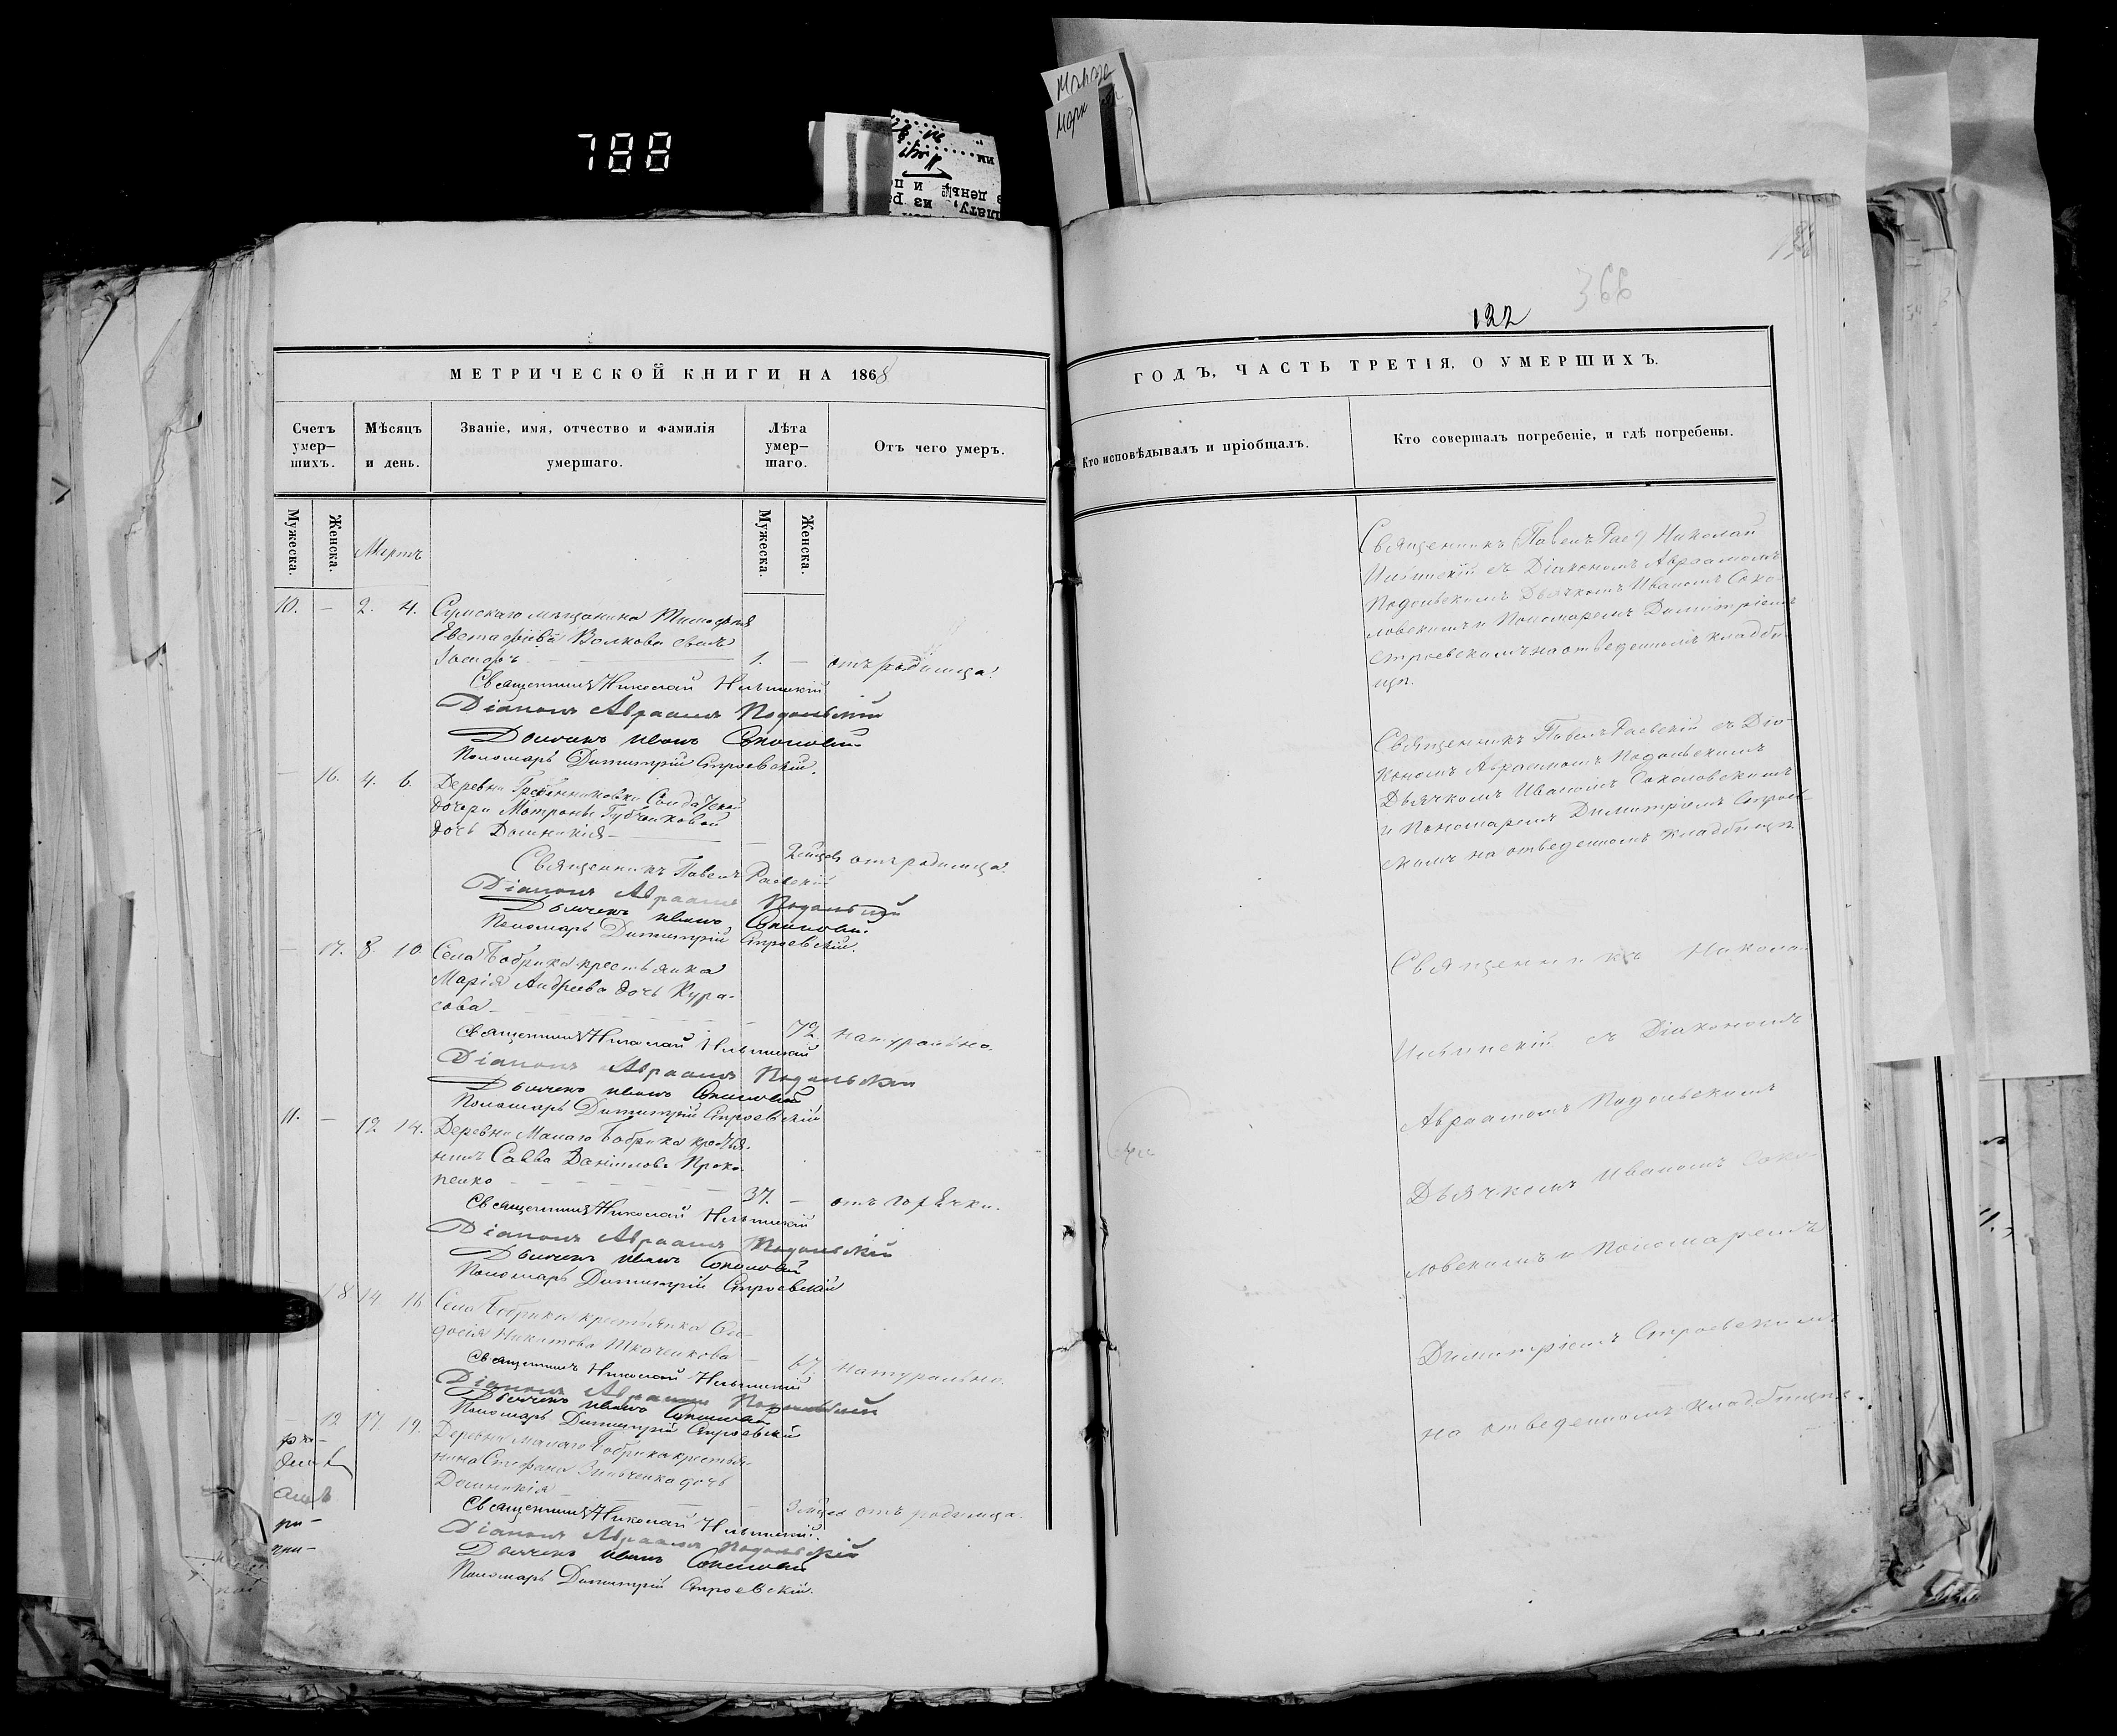 788
Марта
марк
186
366
122
МЕТРИЧЕСКОЙ КНИГИ НА 1868
Счетъ умер-шихъ.
Мѣсяцъ и день.
Званіе, имя, отчество и фамилія умершаго.
Лѣта умер-шаго.
Отъ чего умеръ.
Мужеска.
Женска.
Мартъ
Мужеска.
Женска.
10. — 2. 4. Сумскаго мѣщанина Тимофея
Евстафіева Волкова сынъ
1. — отъ родимца.
Священникъ Николай Ильинскій
Діаконъ Авраамъ Подольскій
Дьячекъ Иванъ Соколовскій
Пономарь Димитрій Строевскій.
— 16. 4. 6. Деревни Гребенниковки Солдатской
дочери Матроны Губченковой
дочь Домникія —
— 2 мѣсяц. отъ родимца.
Священникъ Павелъ Раевскій
Діаконъ Авраамъ Подольскій
Дьячекъ Иванъ Соколовскій
Пономарь Димитрій Строевскій.
— 17. 8. 10. Села Бобрика крестьянка
Марія Андреева дочь Кура-
сова —
— 72. натурально.
Священникъ Николай Ильинскій
Діаконъ Авраамъ Подольскій
Дьячекъ Иванъ Соколовскій
Пономарь Димитрій Строевскій
11. — 12. 14. Деревни Малаго Бобрика крестья-
нинъ Савва Даниловъ Проко-
пенко —
37. — отъ горячки.
Священникъ Николай Ильинскій
Діаконъ Авраамъ Подольскій
Дьячекъ Иванъ Соколовскій
Пономарь Димитрій Строевскій
18 14. 16. Села Бобрика крестьянка Фе-
досія Никитова Ткаченкова —
67. натурально.
Священникъ Николай Ильинскій
Діаконъ Авраамъ Подольскій
Дьячекъ Иванъ Соколовскій
Пономарь Димитрій Строевскій
— 19 17. 19. Деревни Малаго Бобрика крестья-
нина Стефана Зинченка дочь
Домникія —
— 3 мѣсяц. отъ родимца.
Священникъ Николай Ильинскій.
Діаконъ Авраамъ Подольскій
Дьячекъ Иванъ Соколовскій
Пономарь Димитрій Строевскій.
ГОДЪ, ЧАСТЬ ТРЕТІЯ, О УМЕРШИХЪ.
Кто исповѣдывалъ и пріобщалъ.
Кто совершалъ погребеніе, и гдѣ погребены.
Николай
Ильинскій съ Діакономъ Авраамомъ
Подольскимъ Дьячкомъ Иваномъ Соко-
ловскимъ и Пономаремъ Димитріемъ
Строевскимъ на отведенномъ кладби-
щѣ.
Священникъ Павелъ Раевскій съ Діа-
кономъ Авраамомъ Подольскимъ
Дьячкомъ Иваномъ Соколовскимъ
и Пономаремъ Димитріемъ Строев-
скимъ на отведенномъ кладбищѣ.
Священникъ Никола-
Ильинскій съ Діакономъ
Авраамомъ Подольскимъ
Дьячкомъ Иваномъ Соко-
ловскимъ и Пономаремъ
Димитріемъ Строевскимъ
на отведенномъ кладбищѣ.